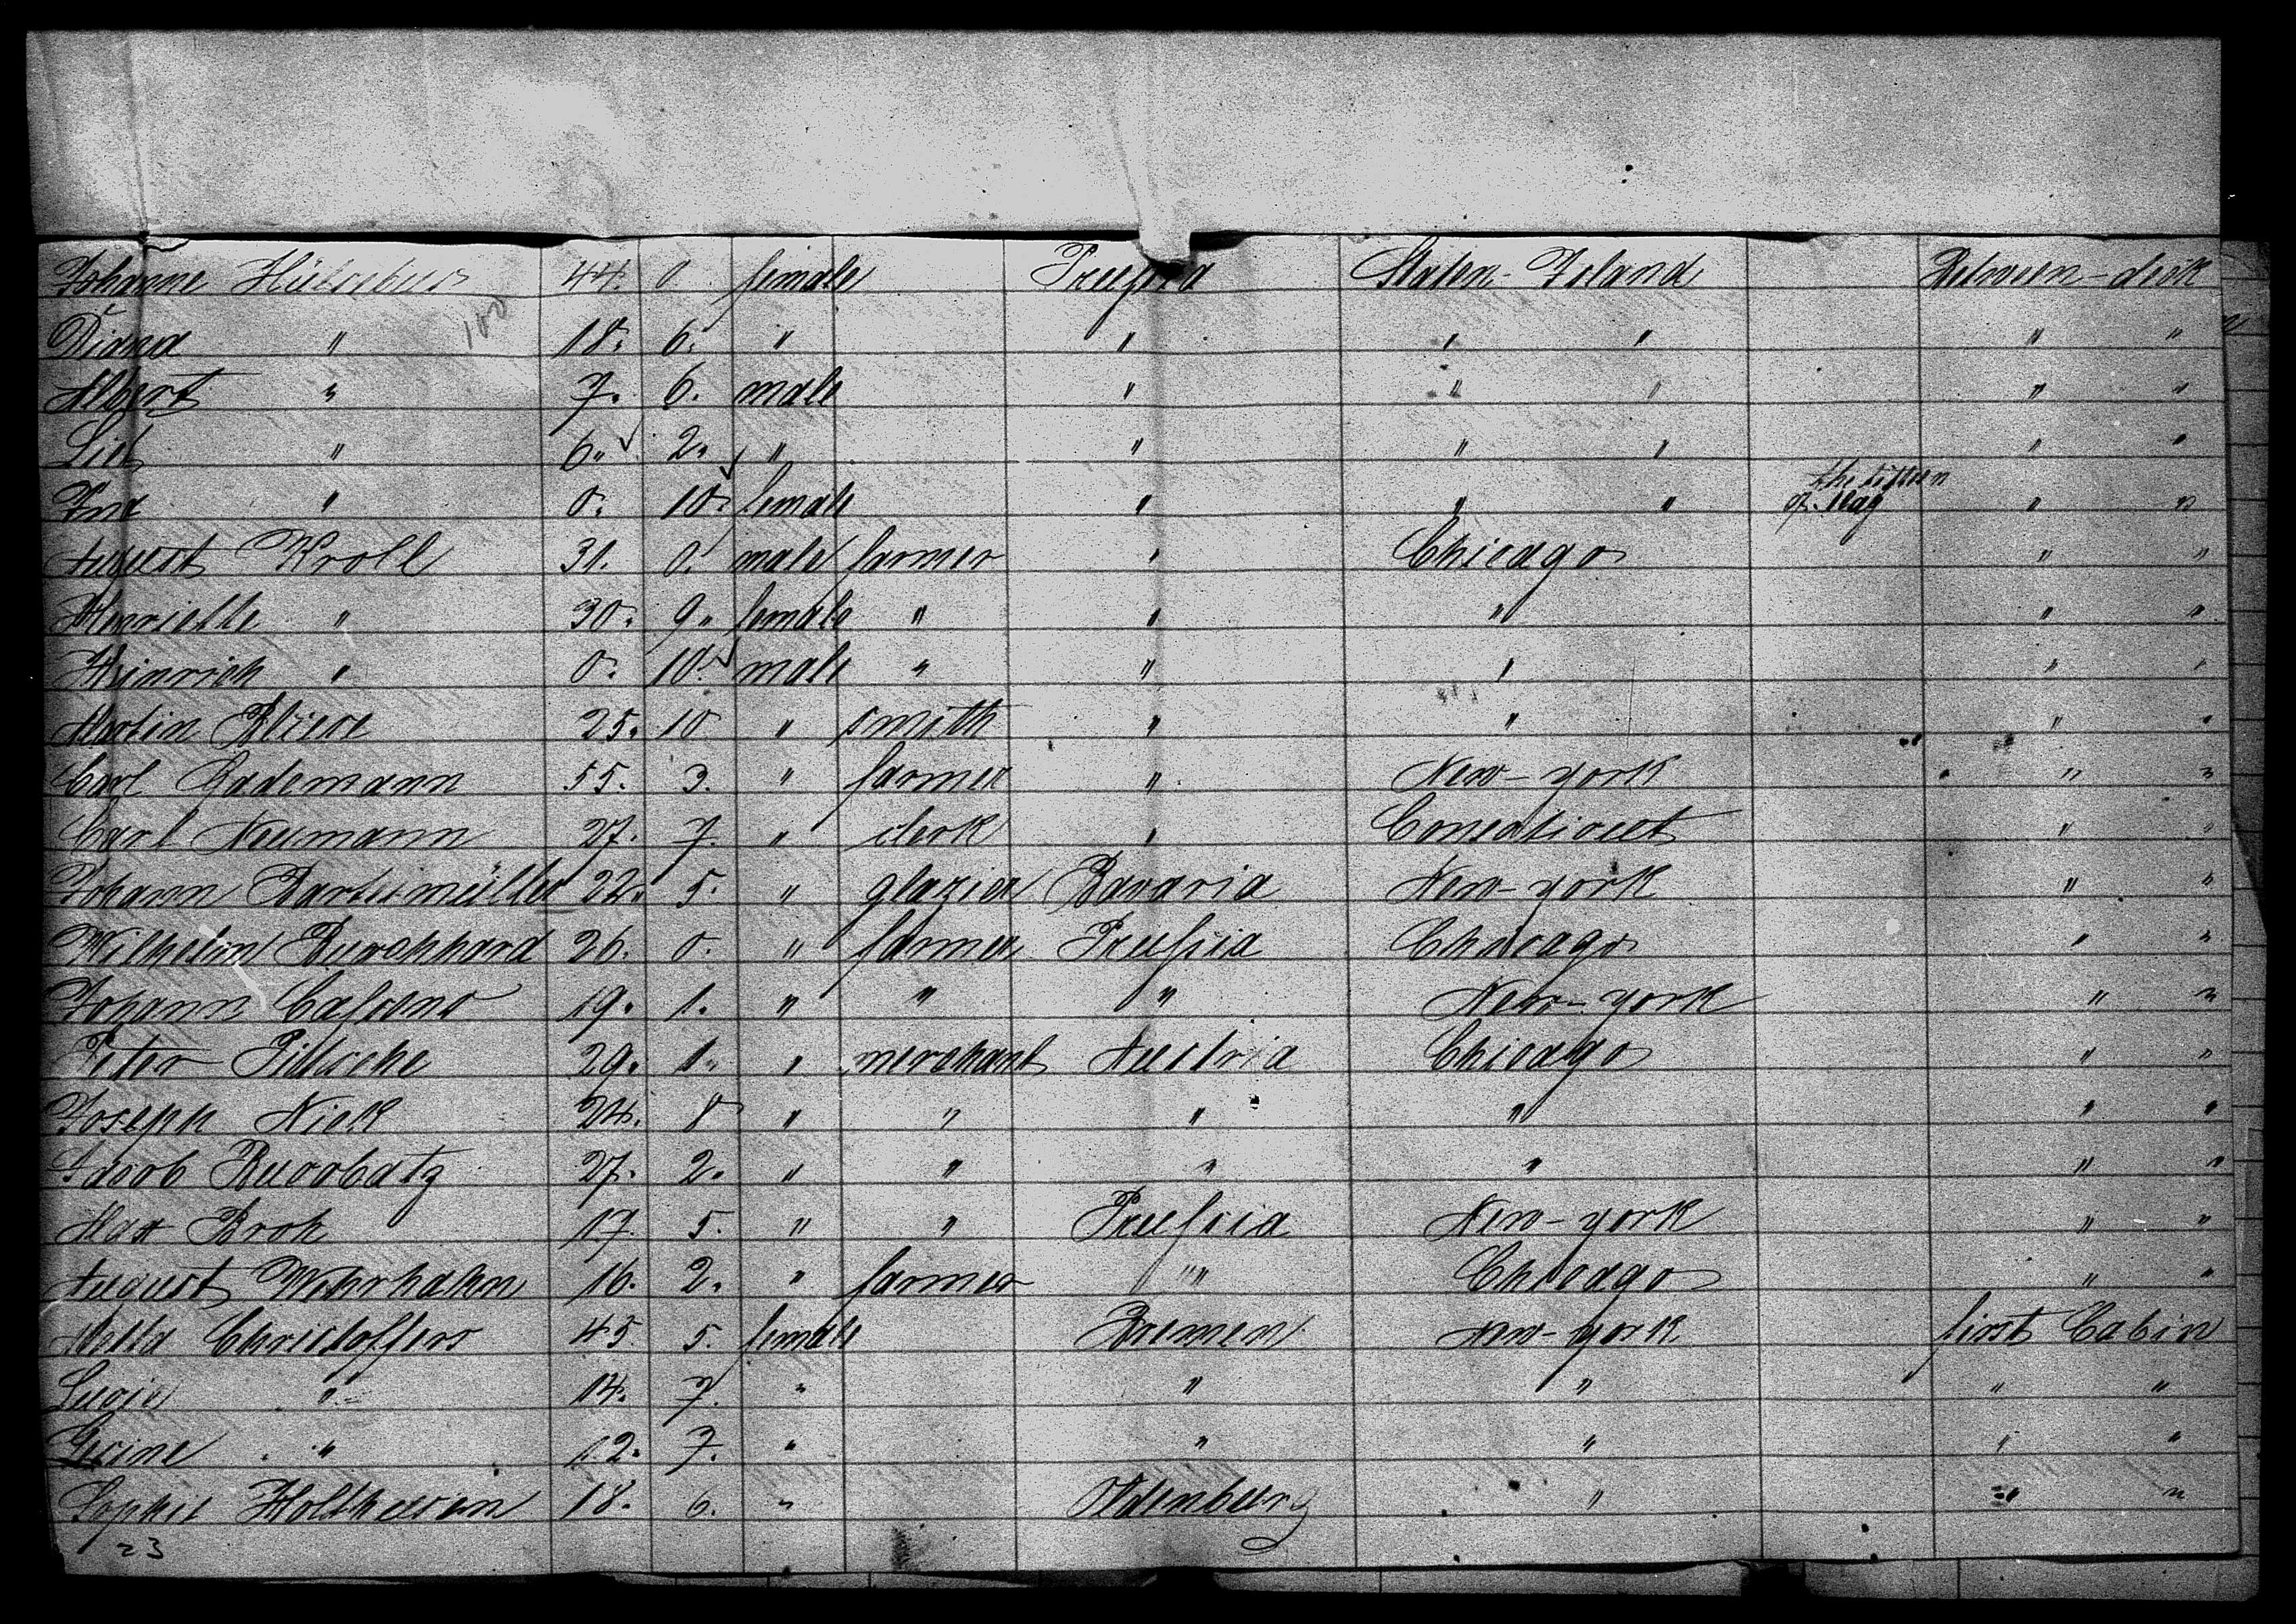 Johanne Hülsebus 44. 0 female Preußia Staten-Island Between-deck
100
Diana " 18. 6. " " " " " "
Albert " 7. 6. male " " " " "
Lid " 6. 2. " " " " " "
Ina " 0. 10. female " " " " "
August Kroll 31. 0. male farmer " Chicago " "
Henriette " 30. 9. female " " " " "
Heinrich " 0. 10. male " " " " "
Martin Bliese 25. 10 " smith " " " "
Carl Gademann 55. 3. " farmer " New-york " "
Carl Neumann 27. 7. " clerk " Conecticut " "
Johann Bartesmüller 22. 5. " glazier Bavaria New-york " "
Wilhelm Burchhard 26. 0. " farmer Preußia Chicago " "
Johann Caßens 19. 1. " " " New-york " "
Peter Pitsche 29. 1. " merchant Austria Chicago " "
Joseph Nick 24. 8 " " " " " "
Jacob 27. 2. " " " " " "
Max Broh 17. 5. " " Preußia New-york " "
August Wehrhahn 16. 2. " farmer " " Chicago " "
Meta Christoffers 45. 5. female Bremen New-york first Cabin
Lucie " 14. 7. " " " " "
Gesine " 12. 7. " " " " "
Sophie Holthusen 18. 6. " Oldenburg " " "
23